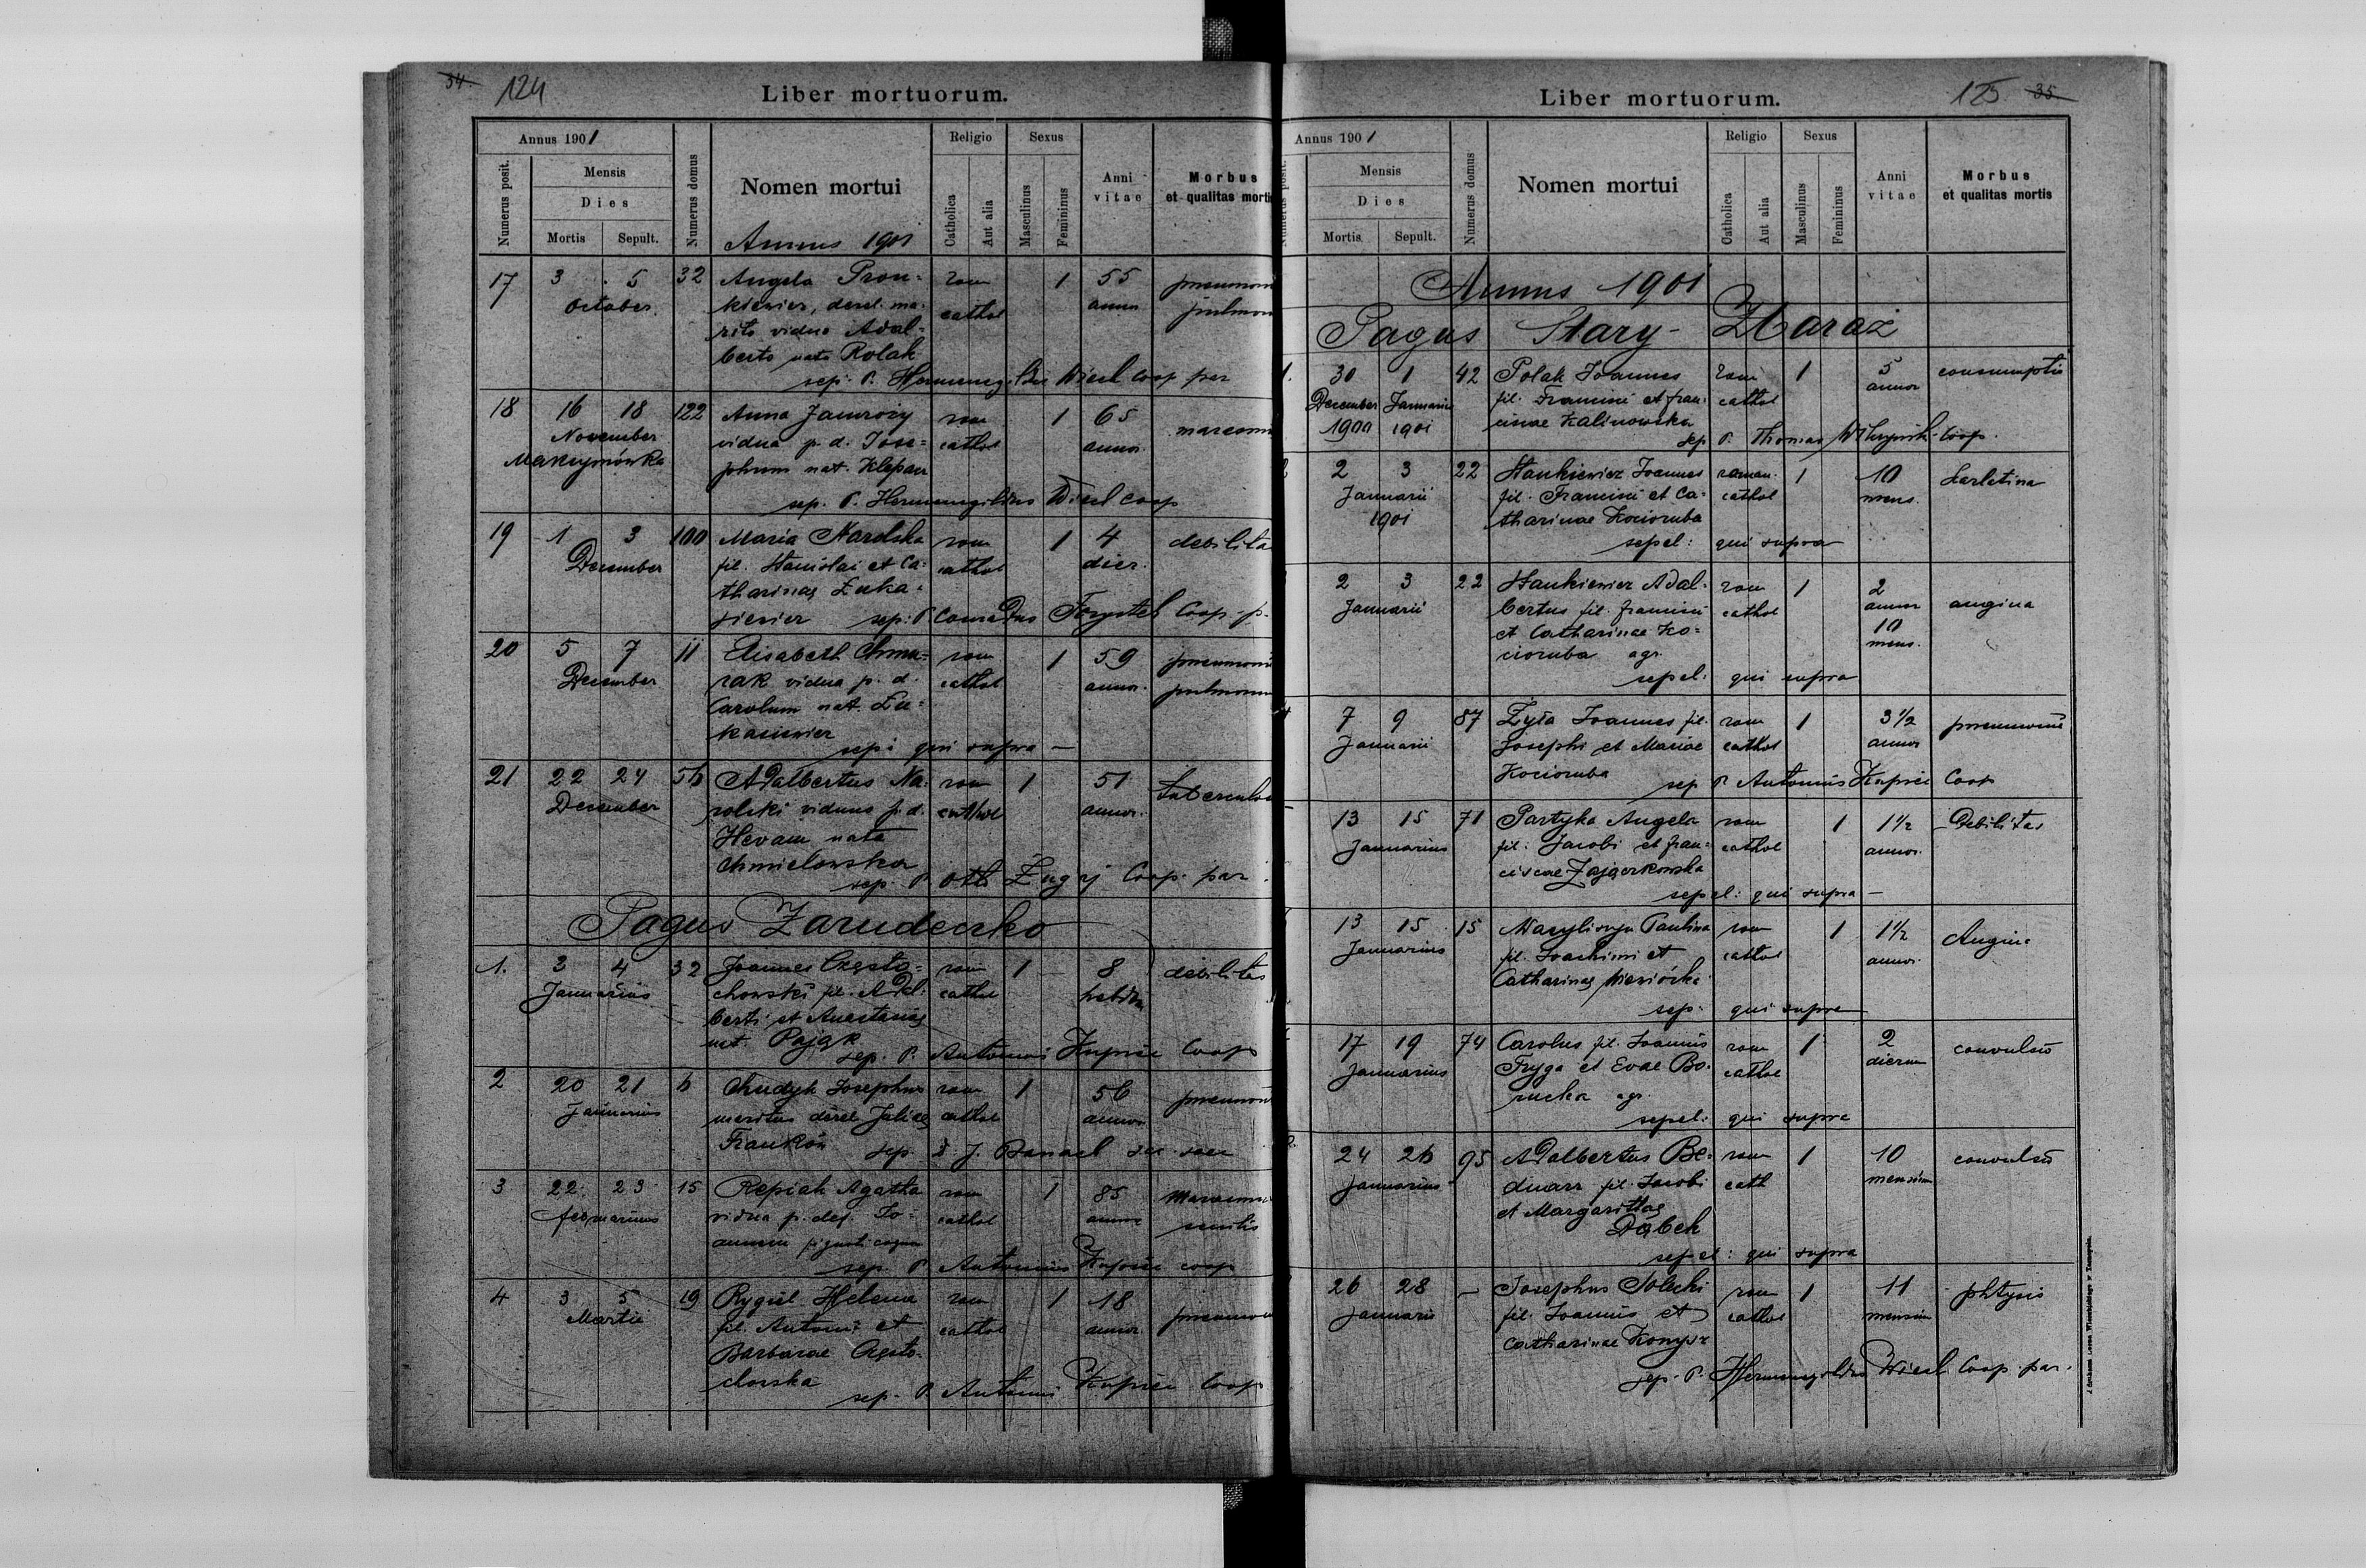 34. 124
Liber mortuorum.
Annus 1901
Numerus posit.
Mensis
Dies
Mortis Sepult.
Numerus domus
Nomen mortui
Religio
Catholica
Aut alia
Sexus
Masculinus
Femininus
Anni vitae
Morbus
et qualitas morti
Annus 1901
17 3 5 32 Angela Pron= rom 1 55 pneumon
October kiewicz, derel. ma= cathol annor pulmon
rito vidua Adal=
berto nata Polak
sep. P. Hermenegildus Wiesl coop par
18 16 18 122 Anna Jamroży rom 1 65 marasm
November vidua p. d. Jose= cathol annor.
Maksymówka phum nat. Klepacz
sep. P. Hermenegildus Wiesl coop
19 1 3 100 Maria Narolska rom 1 4 debilita
December fil. Stanislai et Ca= cathol dier.
tharinae Łuka=
siewicz sep: P. Conradus Forystek Coop. p.
20 5 7 11 Elisabeth Chmu= rom 1 59 pneumoni
December rak vidua p. d. cathol annor. pulmonum
Carolum nat. Łu=
kasiewicz
sep: qui supra —
21 22 24 56 Adalbertus Na= rom 1 51 tuberculos
December rolski viduus p. d. cathol annor.
Hevam nata
Chmielowska
sep. P. Otto Coop. par.
Pagus Zarudeczko
1. 3 4 32 Joannes Często= rom 1 8 debilitas
Januarius chowski fil. Adal= cathol hebdom
berti et Anastasiae
nat. Pająk
sep. P. Antonius Kupiec Coop
2 20 21 6 Chudyk Josephus rom 1 56 pneumon
Januarius maritus derel. Juliae cathol annor
sep. J. Banach
3 22 23 15 Repiak Agatha rom 1 85 marasmus
februarius vidua p. def. Jo= cathol annor senilis
annem
sep. P. Antonius Kupiec coop
4 3 5 19 Rygiel Helena rom 1 18 pneumon
Martii fil. Antonii et cathol annor
Barbarae Często=
chowska
sep. P. Antonius Kupiec Coop
Liber mortuorum.
125. 35
Annus 1901
Numerus posit.
Mensis
Dies
Mortis Sepult.
Numerus domus
Nomen mortui
Religio
Catholica
Aut alia
Sexus
Masculinus
Femininus
Anni vitae
Morbus
et qualitas mortis
Annus 1901
Pagus Stary-Zbaraż
1. 30 1 42 Polak Joannes rom 1 5 consumptio
December Januarii fil. Francisci et Fran= cathol annor
1900 1901 ciscae Kalinowska
sep P. Thomas Coop.
2 3 22 Stankiewicz Joannes roman. 1 10 Scarlatina
Januarii fil. Francisci et Ca= cathol mens.
1901 tharinae Kocioruba
sepel: qui supra
2 3 22 Stankiewicz Adal= rom 1 2
Januarii bertus fil. Francisci cathol annor angina
et Catharinae Ko= 10
cioruba agr. mens.
sepel: qui supra
7 9 87 Zyła Joannes fil. rom 1 3 1/2 pneumonia
Januarii Josephi et Mariae cathol annor
Kocioruba
sep P. Antonius Kupiec Coop
13 15 71 Partyka Angela rom 1 1 1/2 Debilitas
Januarius fil. Jacobi et Fran= cathol annor.
ciscae Zajączkowska
sepel: qui supra —
13 15 15 Wasyliszyn Paulina rom 1 1 1/2 Angina
Januarius fil. Joachimi et cathol annor.
Catharinae
sep. qui supra
17 19 74 Carolus fil. Joannis rom 1 2 convulsio
Januarius Fryga et Evae Bo= cathol dierum
rucka agr.
sepel: qui supra
24 26 95 Adalbertus Be= rom 1 10 convulsio
Januarius dnarz fil. Jacobi cath mensium
et Margarittae
Dąbek
sepel: qui supra
26 28 — Josephus Solecki rom 1 11 phtysis
Januarii fil. Joannis et cathol mensium
Catharinae
sep. P. Hermenegildus Wiesl Coop. par.